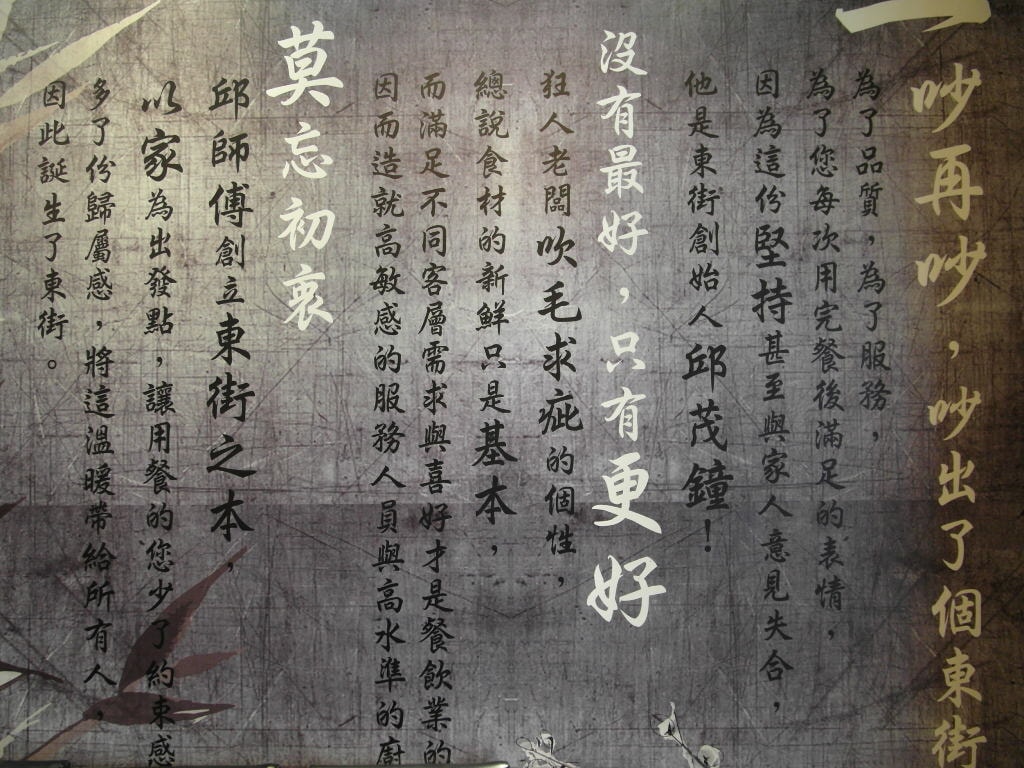 吵再吵，吵出了個東街
為了品質，為了服務，
為了您每次用完餐後滿足的表情，
因為這份堅持甚至與家人意見失合，
他是東街創始人邱茂鐘！
沒有最好，只有更好
狂人老闆吹毛求疵的個性，
總說食材的新鮮只是基本，
而滿足不同客層需求與喜好才是餐飲業的
因而造就高敏感的服務人員與高水準的廚
莫忘初衷
邱師傅創立東街之本，
以家為出發點，讓用餐的您少了約束感
多了份歸屬感，將這溫暖帶給所有人，
因此誕生了東街。